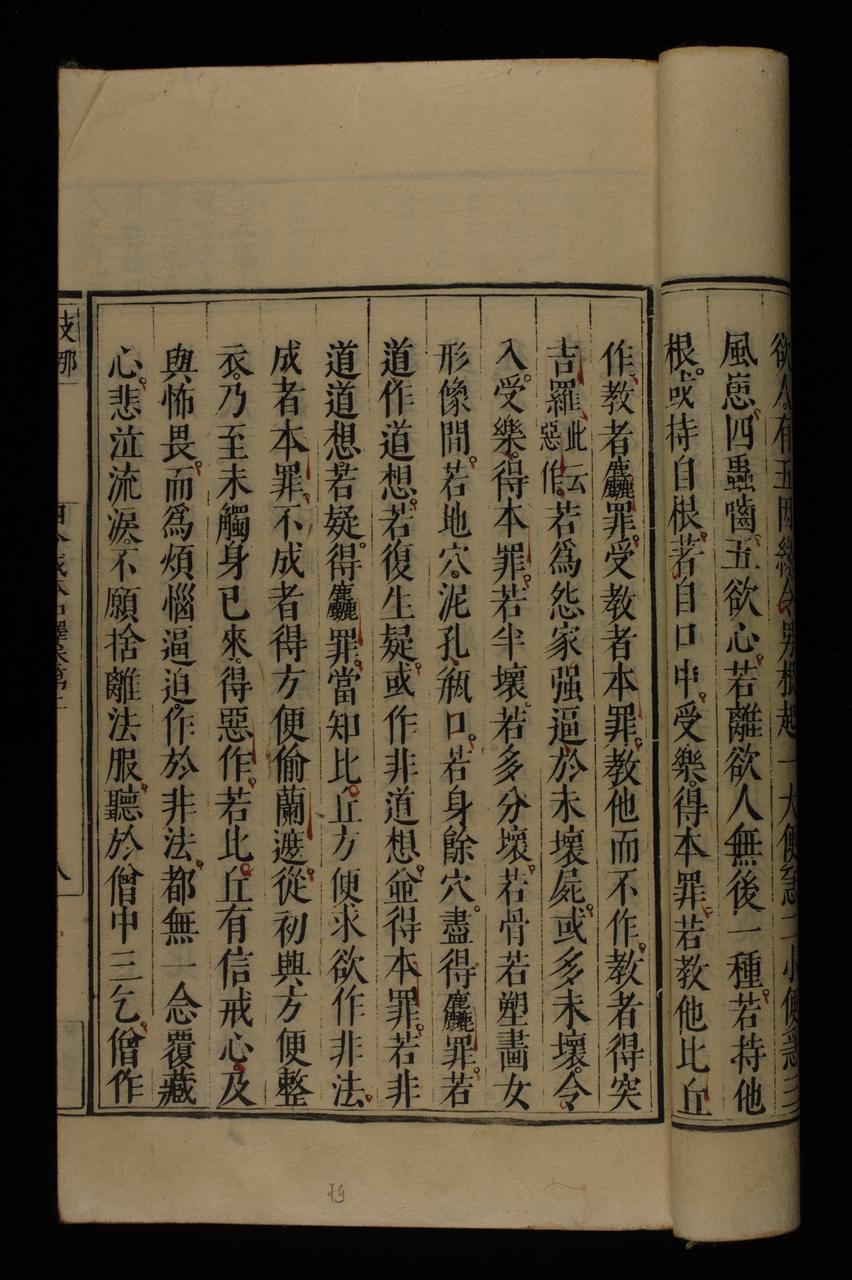 欲人有五因緣令男根起一大便急二小便急三
風患四蟲嚙五欲心若離欲人無後一種若持他
根或持自根若自口中受樂得本罪若教他比丘
作教者麤罪受教者本罪教他而不作教者得突
吉羅此云惡作若爲怨家强逼於未壞屍或多未壞令
入受樂得本罪若半壞若多分壞若骨若塑畫女
形像間若地穴泥孔瓶口若身餘穴盡得麤罪若
道作道想若復生疑或作非道想並得本罪若非
道道想若疑得麤罪當知比丘方便求欲作非法
成者本罪不成者得方便偷蘭遮從初興方便整
衣乃至未觸身已來得惡作若比丘有信戒心及
與怖畏而爲煩惱逼迫作於非法都無一念覆藏
心悲泣流淚不願捨離法服聽於僧中三乞僧作
支那
八
79